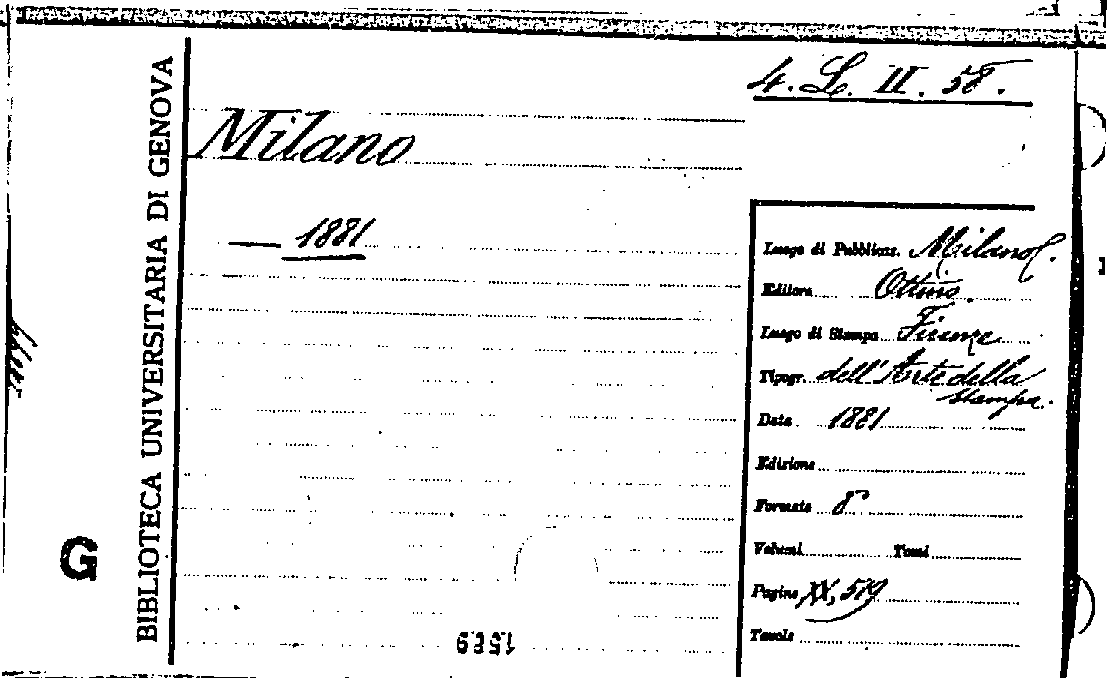 4. L. II. 58.
BIBLIOTECA UNIVERSITARIA DI GENOVA
Milano
— 1881
Luogo di Pubblicaz. Milano.
Editore Ottino.
Luogo di Stampa Firenze
Tipogr. dell'Arte della
Stampa.
Data 1881
Edizione
Formato 8°
Volumi Tomi
Pagine XX, 519
Tavole
G
1569